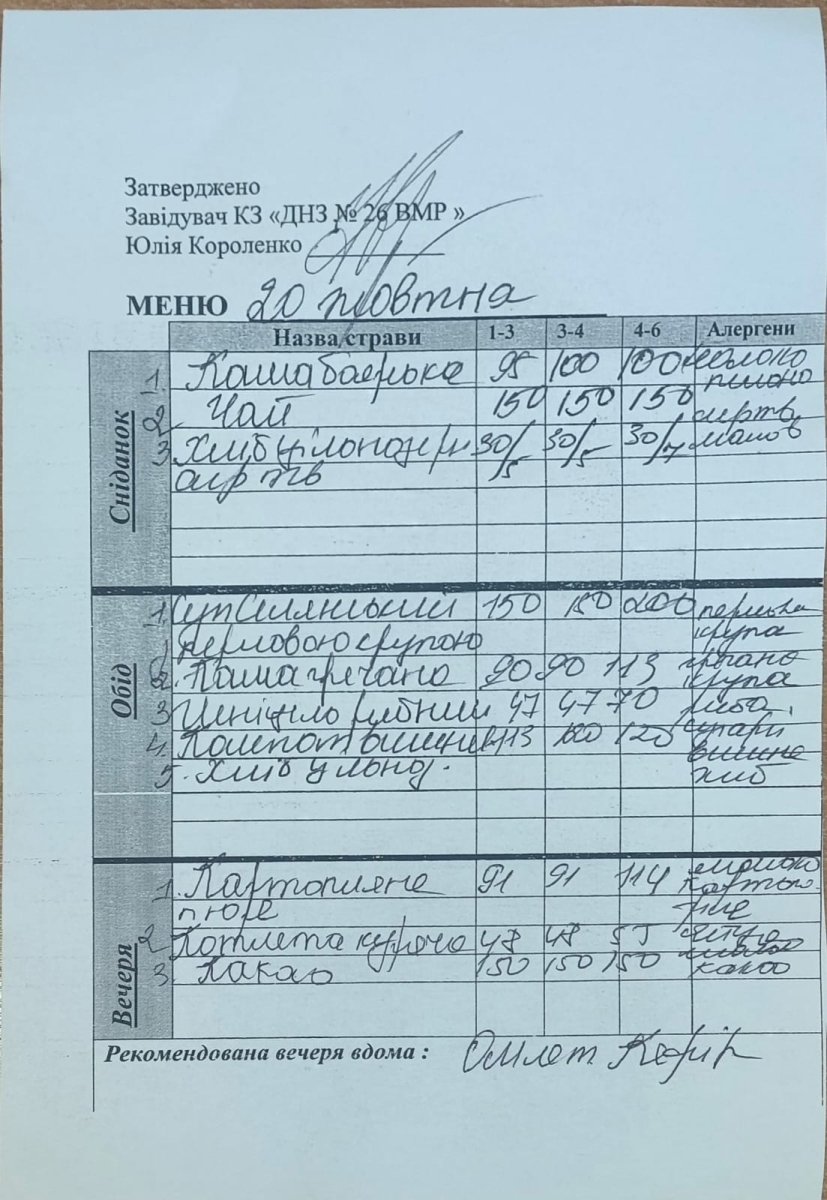 Затверджено
Завідувач КЗ «ДНЗ № 26 ВМР »
Юлія Короленко
МЕНЮ 20 жовтня
Назва страви 1-3 3-4 4-6 Алергени
Сніданок
1. Каша боярська 95 100 100 молоко
пшоно
2 Чай 150 150 150 сир тв
3 Хліб цільнозерн 30/5 30/5 30/7
сир тв
Обід
1. Суп Селянський 150 150 200 перлова
перловою крупою крупа
2. Каша гречана 90 90 113 гречана
крупа
3 рибний 47 47 70 риба,
4. Компот вишнев 113 120 120 сухарі
вишня
5. Хліб цільноз. хліб
Вечеря
1. Картопляне 91 91 114 молоко
пюре
2 Котлета куряча 48 48 55
3. Какао 150 150 150 какао
Рекомендована вечеря вдома : Омлет Кефір